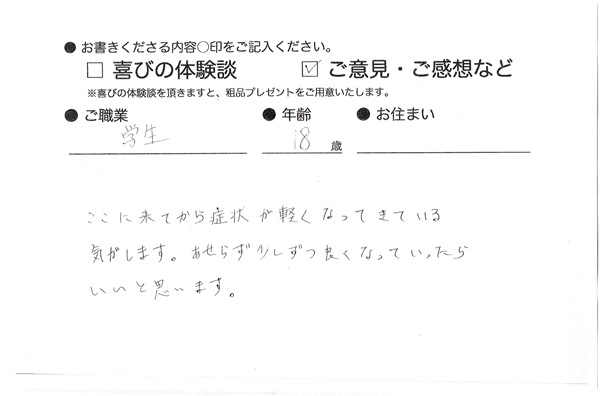 ● お書きくださる内容○印をご記入ください。
□ 喜びの体験談 ☑ ご意見・ご感想など
※喜びの体験談を頂きますと、粗品プレゼントをご用意いたします。
● ご職業 ● 年齢 ● お住まい
学生 18 歳
ここに来てから症状が軽くなってきている
気がします。あせらず少しずつ良くなっていったら
いいと思います。